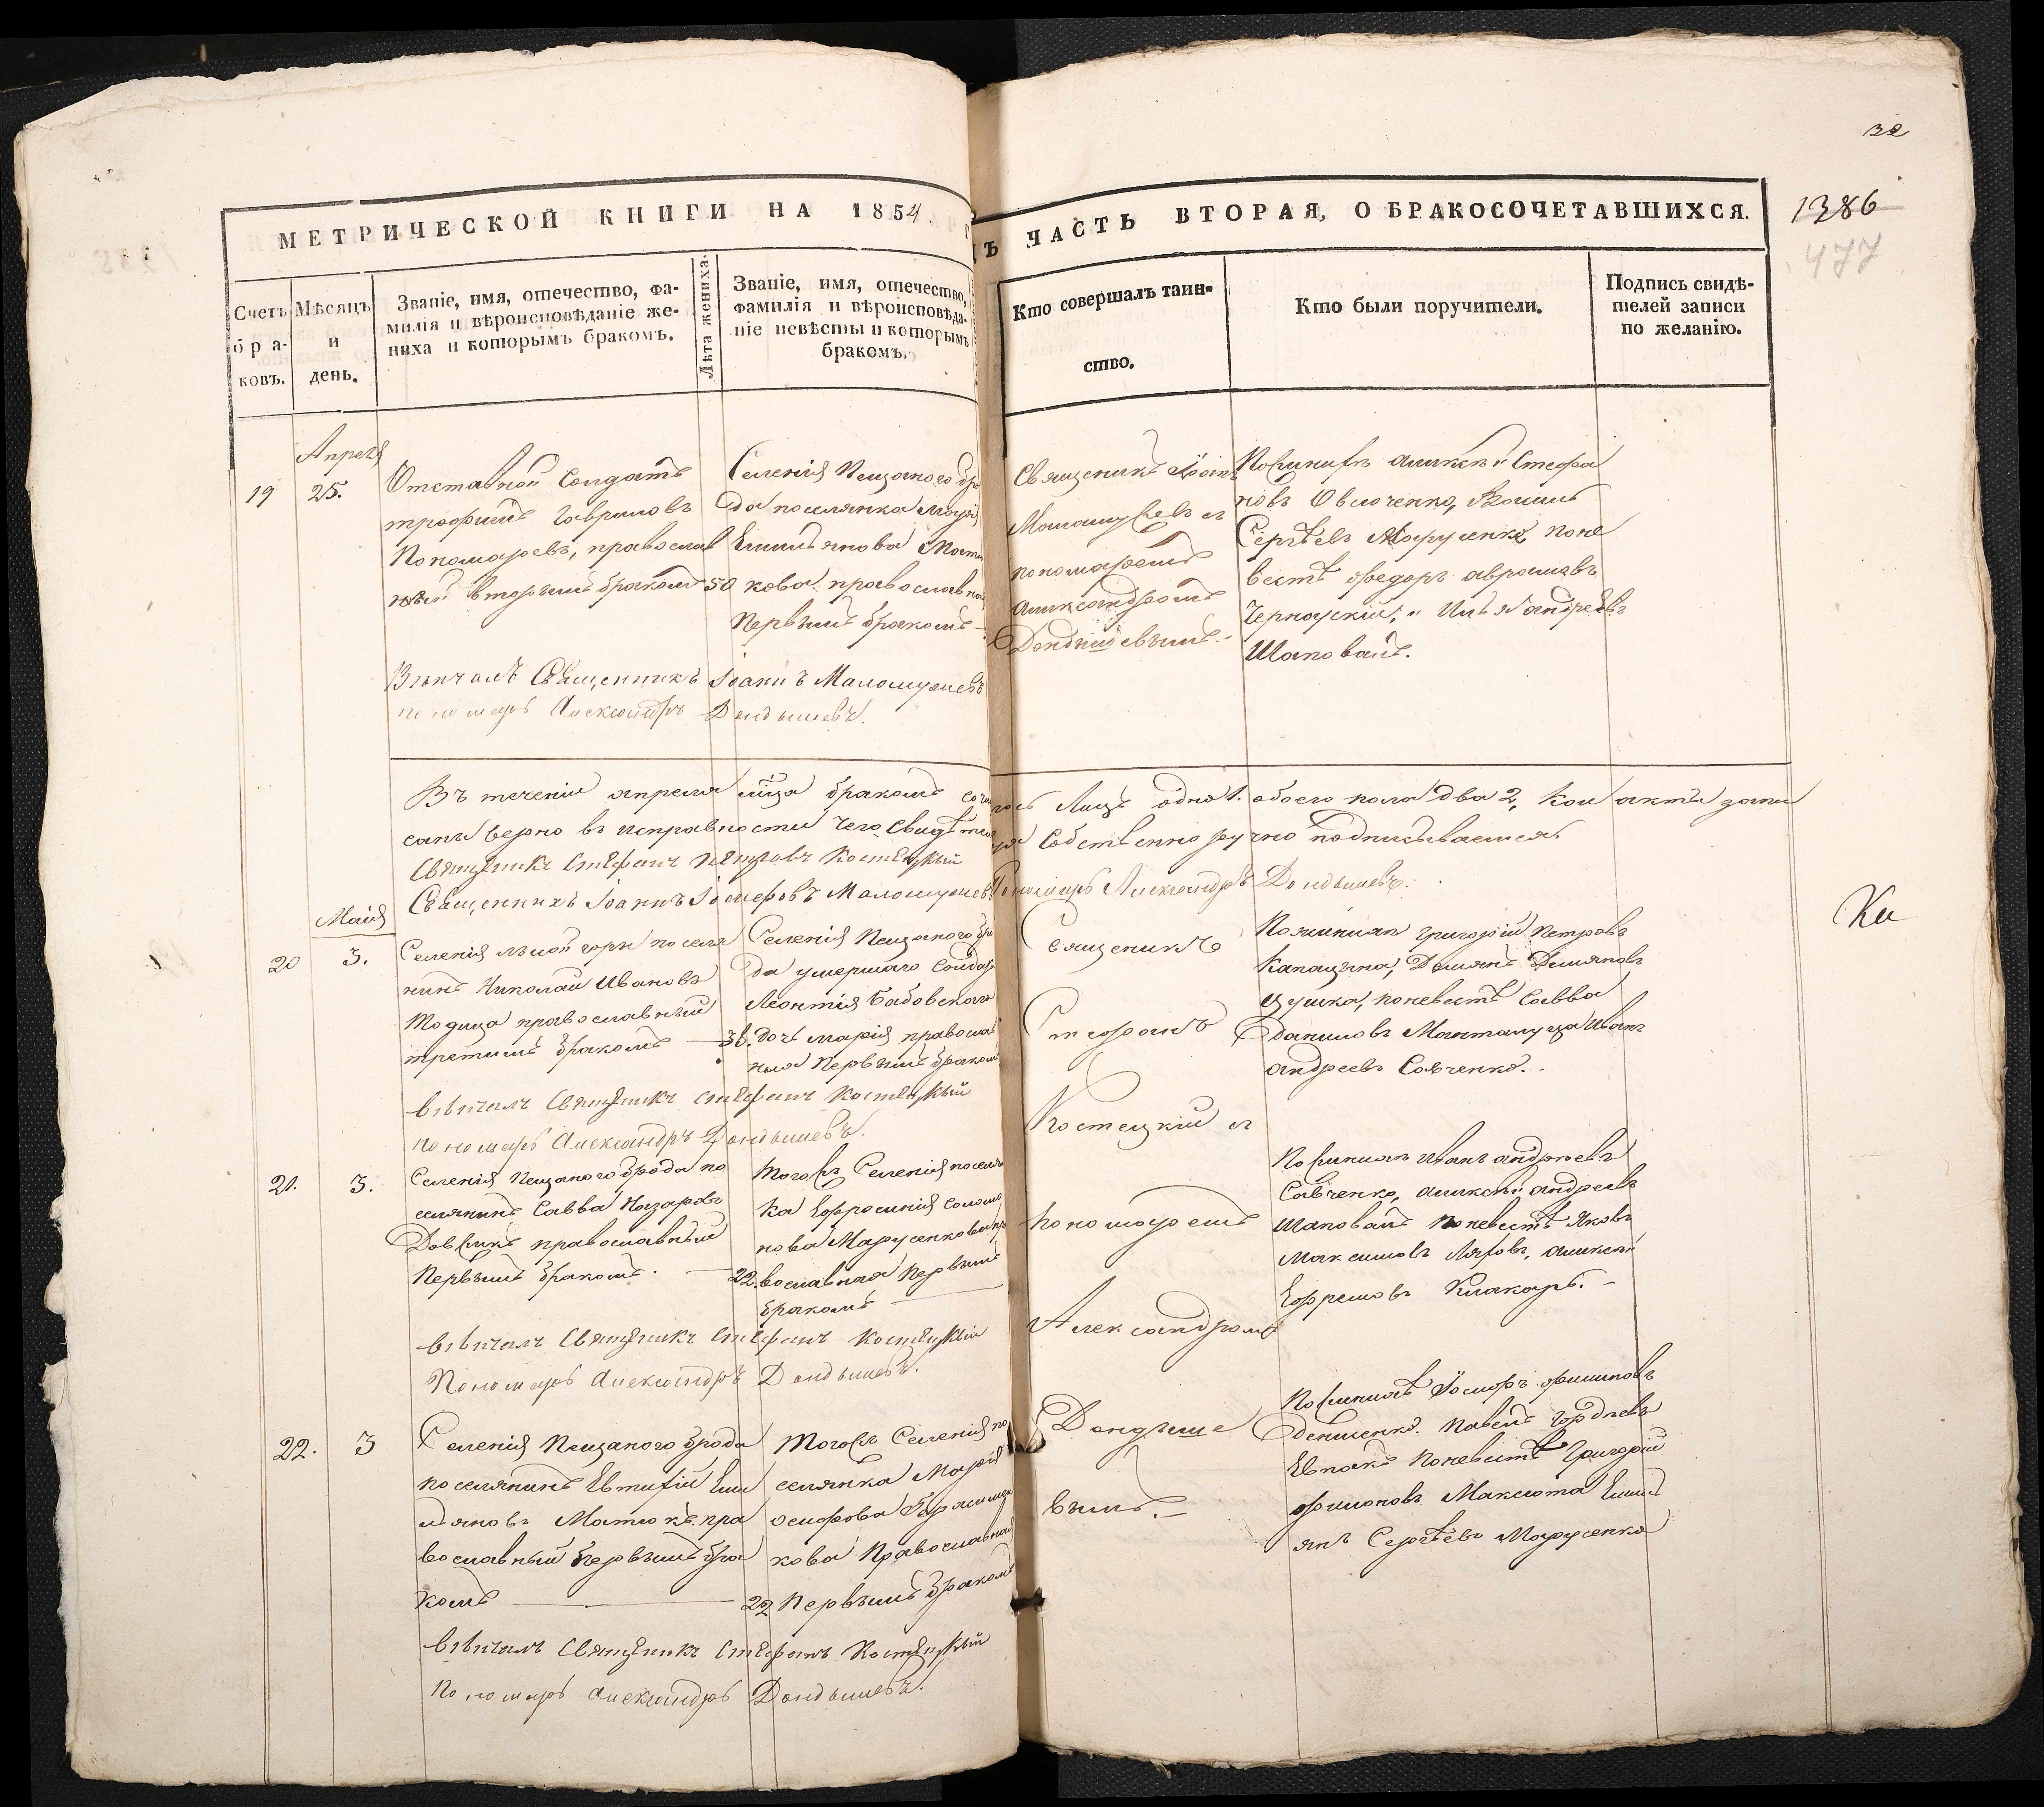 32
МЕТРИЧЕСКОЙ КНИГИ НА 1854
ЧАСТЬ ВТОРАЯ, О БРАКОСОЧЕТАВШИХСЯ.
1386
477
Счетъ бра-ковъ.
Мѣсяцъ и день.
Званіе, имя, отечество, фа-
милія и вѣроисповѣданіе же-
ниха и которымъ бракомъ.
Лѣта жениха.
Званіе, имя, отечество,
фамилія и вѣроисповѣда-
ніе невѣсты и которымъ
бракомъ.
Кто совершалъ таин-
ство.
Кто были поручители.
Подпись свидѣ-
телей записи
по желанію.
Апреля
19 25.
Отставной Солдатъ
трофимъ Гавриловъ
Пономаревъ, православ
ный вторымъ бракомъ 50
Селенія Песщаного бро
да поселянка
Емильянова
кова православна
Первымъ бракомъ
Священикъ Іоанъ
Маломужевъ съ
пономаремъ
александромъ
Дондышевымъ.
По женихѣ алексѣй Стефа
новъ
Сергѣевъ Марусенко поне
вестѣ федоръ аврамовъ
Чернауский, и Илья андреевъ
Шаповалъ.
Вѣнчалъ Священникъ Іоаннъ Маломужевъ
пономарь Александръ Дондышевъ.
Въ теченіи апреля мца бракомъ
Лицъ одно 1. обоего пола два 2, кои акты запи
саны верно въ исправности чего
собственноручно подписываемся
Священикъ Стефанъ Петровъ Костецкий
Священникъ Іоаннъ Іосифовъ Маломужевъ
Пономарь Александръ Дондышевъ.
Ки
Маія
20 3.
Селенія лысой горы поселя
нинъ Николай Ивановъ
Тодица православный
третимъ бракомъ
Селенія Песщаного бро
да умершаго Солдата
Леонтія Бабовскаго
дочь марія православ
ная Первымъ бракомъ
Священикъ
Стефанъ
Костецкий съ
пономаремъ
Александромъ
Дондыше
вымъ.
По женихѣ григорій Петровъ
Капацына, Демянъ Демяновъ
поневестѣ Савва
даниловъ Манталуца Иванъ
андреевъ Савченко.
вѣнчалъ Священикъ Стефанъ Костецкий
пономарь Александръ Дондышевъ.
21. 3.
Селенія Песщаного брода по
селянинъ Савва Назаровъ
Довжикъ православный
Первымъ бракомъ. 22.
Того ж Селенія поселян
ка Ефросинія соломо
нова Марусенкова пра
вославная Первымъ
бракомъ
По женихѣ Иванъ андреевъ
Савченко, алексѣй андреевъ
Шаповалъ поневестѣ Яковъ
Максимовъ алексѣй
Ефремовъ
вѣнчалъ Священикъ Стефанъ Костецкий
Пономарь Александръ Дондышевъ.
22. 3
Селенія Песщаного брода
поселянинъ Евтифій Еми
льяновъ Матюкъ пра
вославный Первымъ бра
комъ 22
Того ж Селенія по
селянка Марія
осифова
кова Православная
Первымъ бракомъ
По женихѣ Іосифъ филиповъ
денисенко. Павелъ Гордѣевъ
поневестѣ Григорій
филиповъ Максюта Емил
янъ Сергѣевъ Марусенко
вѣнчалъ Священикъ Стефанъ Костецкий
Пономарь Александръ Дондышевъ.